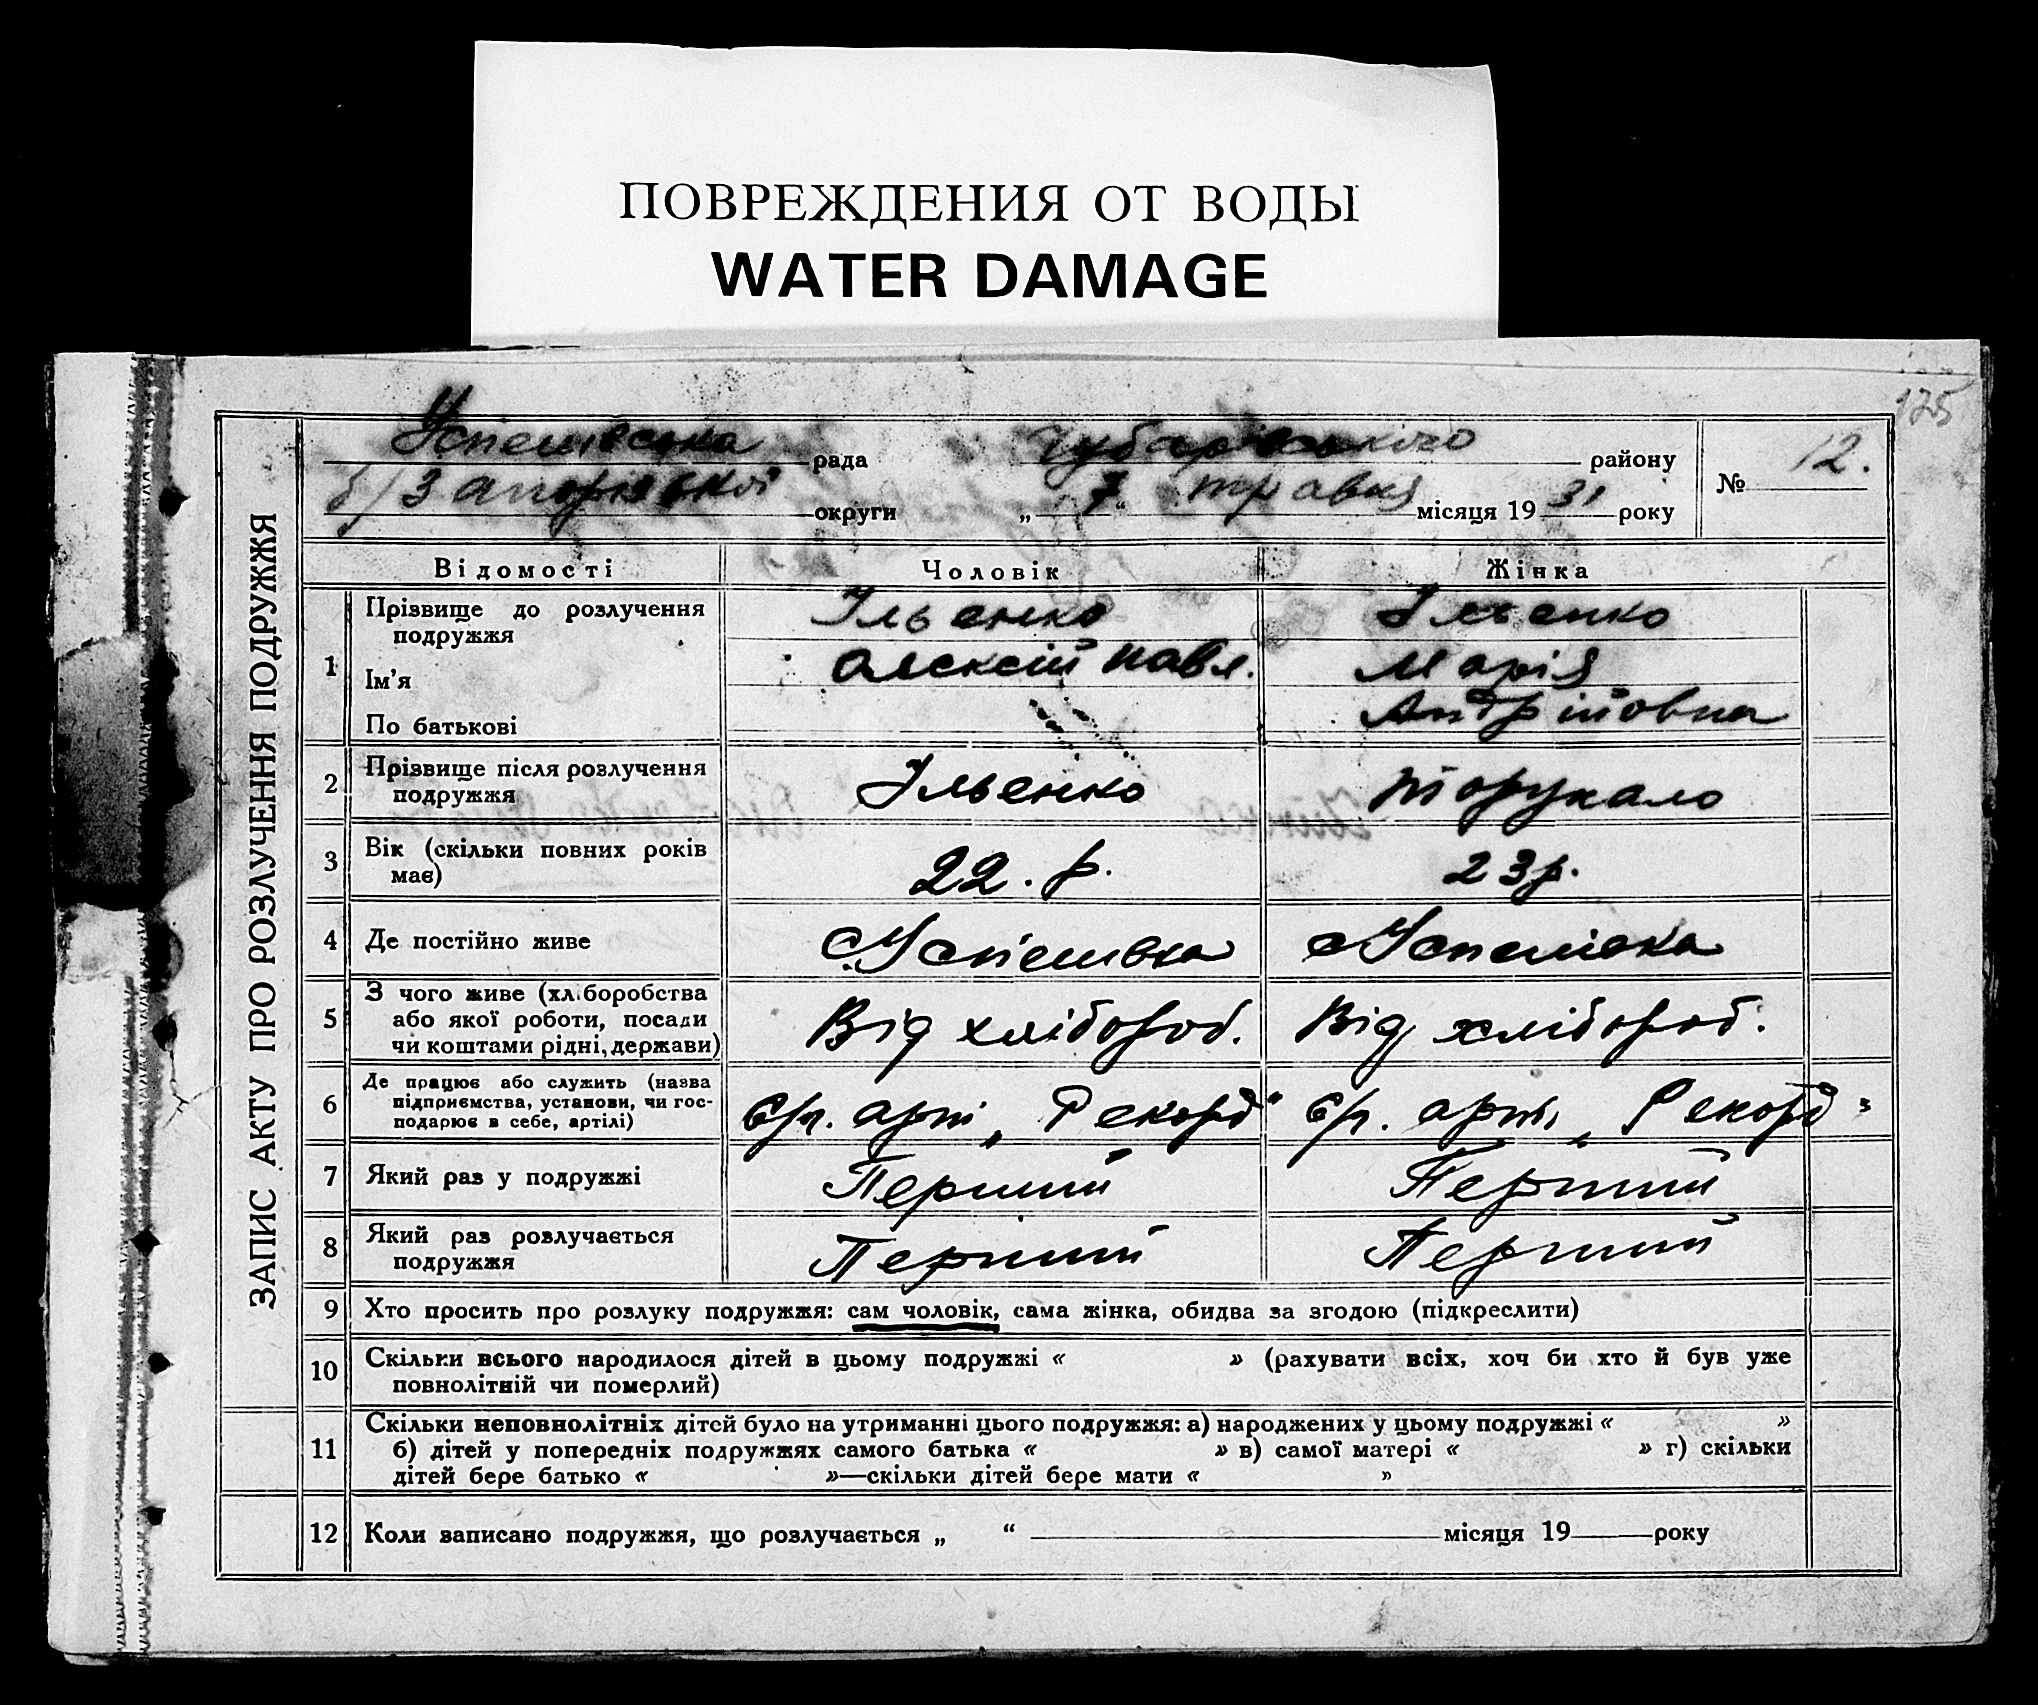 ПОВРЕЖДЕНИЯ ОТ ВОДЫ
WATER DAMAGE
175
Успенівська рада Чубарівського району № 12.
б/Запорізької округи „ 7 “ травня місяця 1931 року
ЗАПИС АКТУ ПРО РОЗЛУЧЕННЯ ПОДРУЖЖЯ
Відомості Чоловік Жінка
1 Прізвище до розлучення подружжя Ільенко Ільенко
Ім'я Алексій Павл. Марія
По батькові Андрійовна
2 Прізвище після розлучення подружжя Ільенко
3 Вік (скільки повних років має) 22. р. 23 р.
4 Де постійно живе С. Успенівка С Успенівка
5 З чого живе (хліборобства або якої роботи, посади чи коштами рідні, держави) Від хлібороб. Від хлібороб.
6 Де працює або служить (назва підприємства, установи, чи господарює в себе, артілі) с/г. арт „Рекорд“ с/г. арт. „Рекорд“
7 Який раз у подружжі Перший Перший
8 Який раз розлучається подружжя Перший Перший
9 Хто просить про розлуку подружжя: сам чоловік, сама жінка, обидва за згодою (підкреслити)
10 Скільки всього народилося дітей в цьому подружжі « » (рахувати всіх, хоч би хто й був уже
повнолітній чи померлий)
11 Скільки неповнолітніх дітей було на утриманні цього подружжя: а) народжених у цьому подружжі « »
б) дітей у попередніх подружжях самого батька « » в) самої матері « » г) скільки
дітей бере батько « »—скільки дітей бере мати « »
12 Коли записано подружжя, що розлучається „ “ місяця 19 року